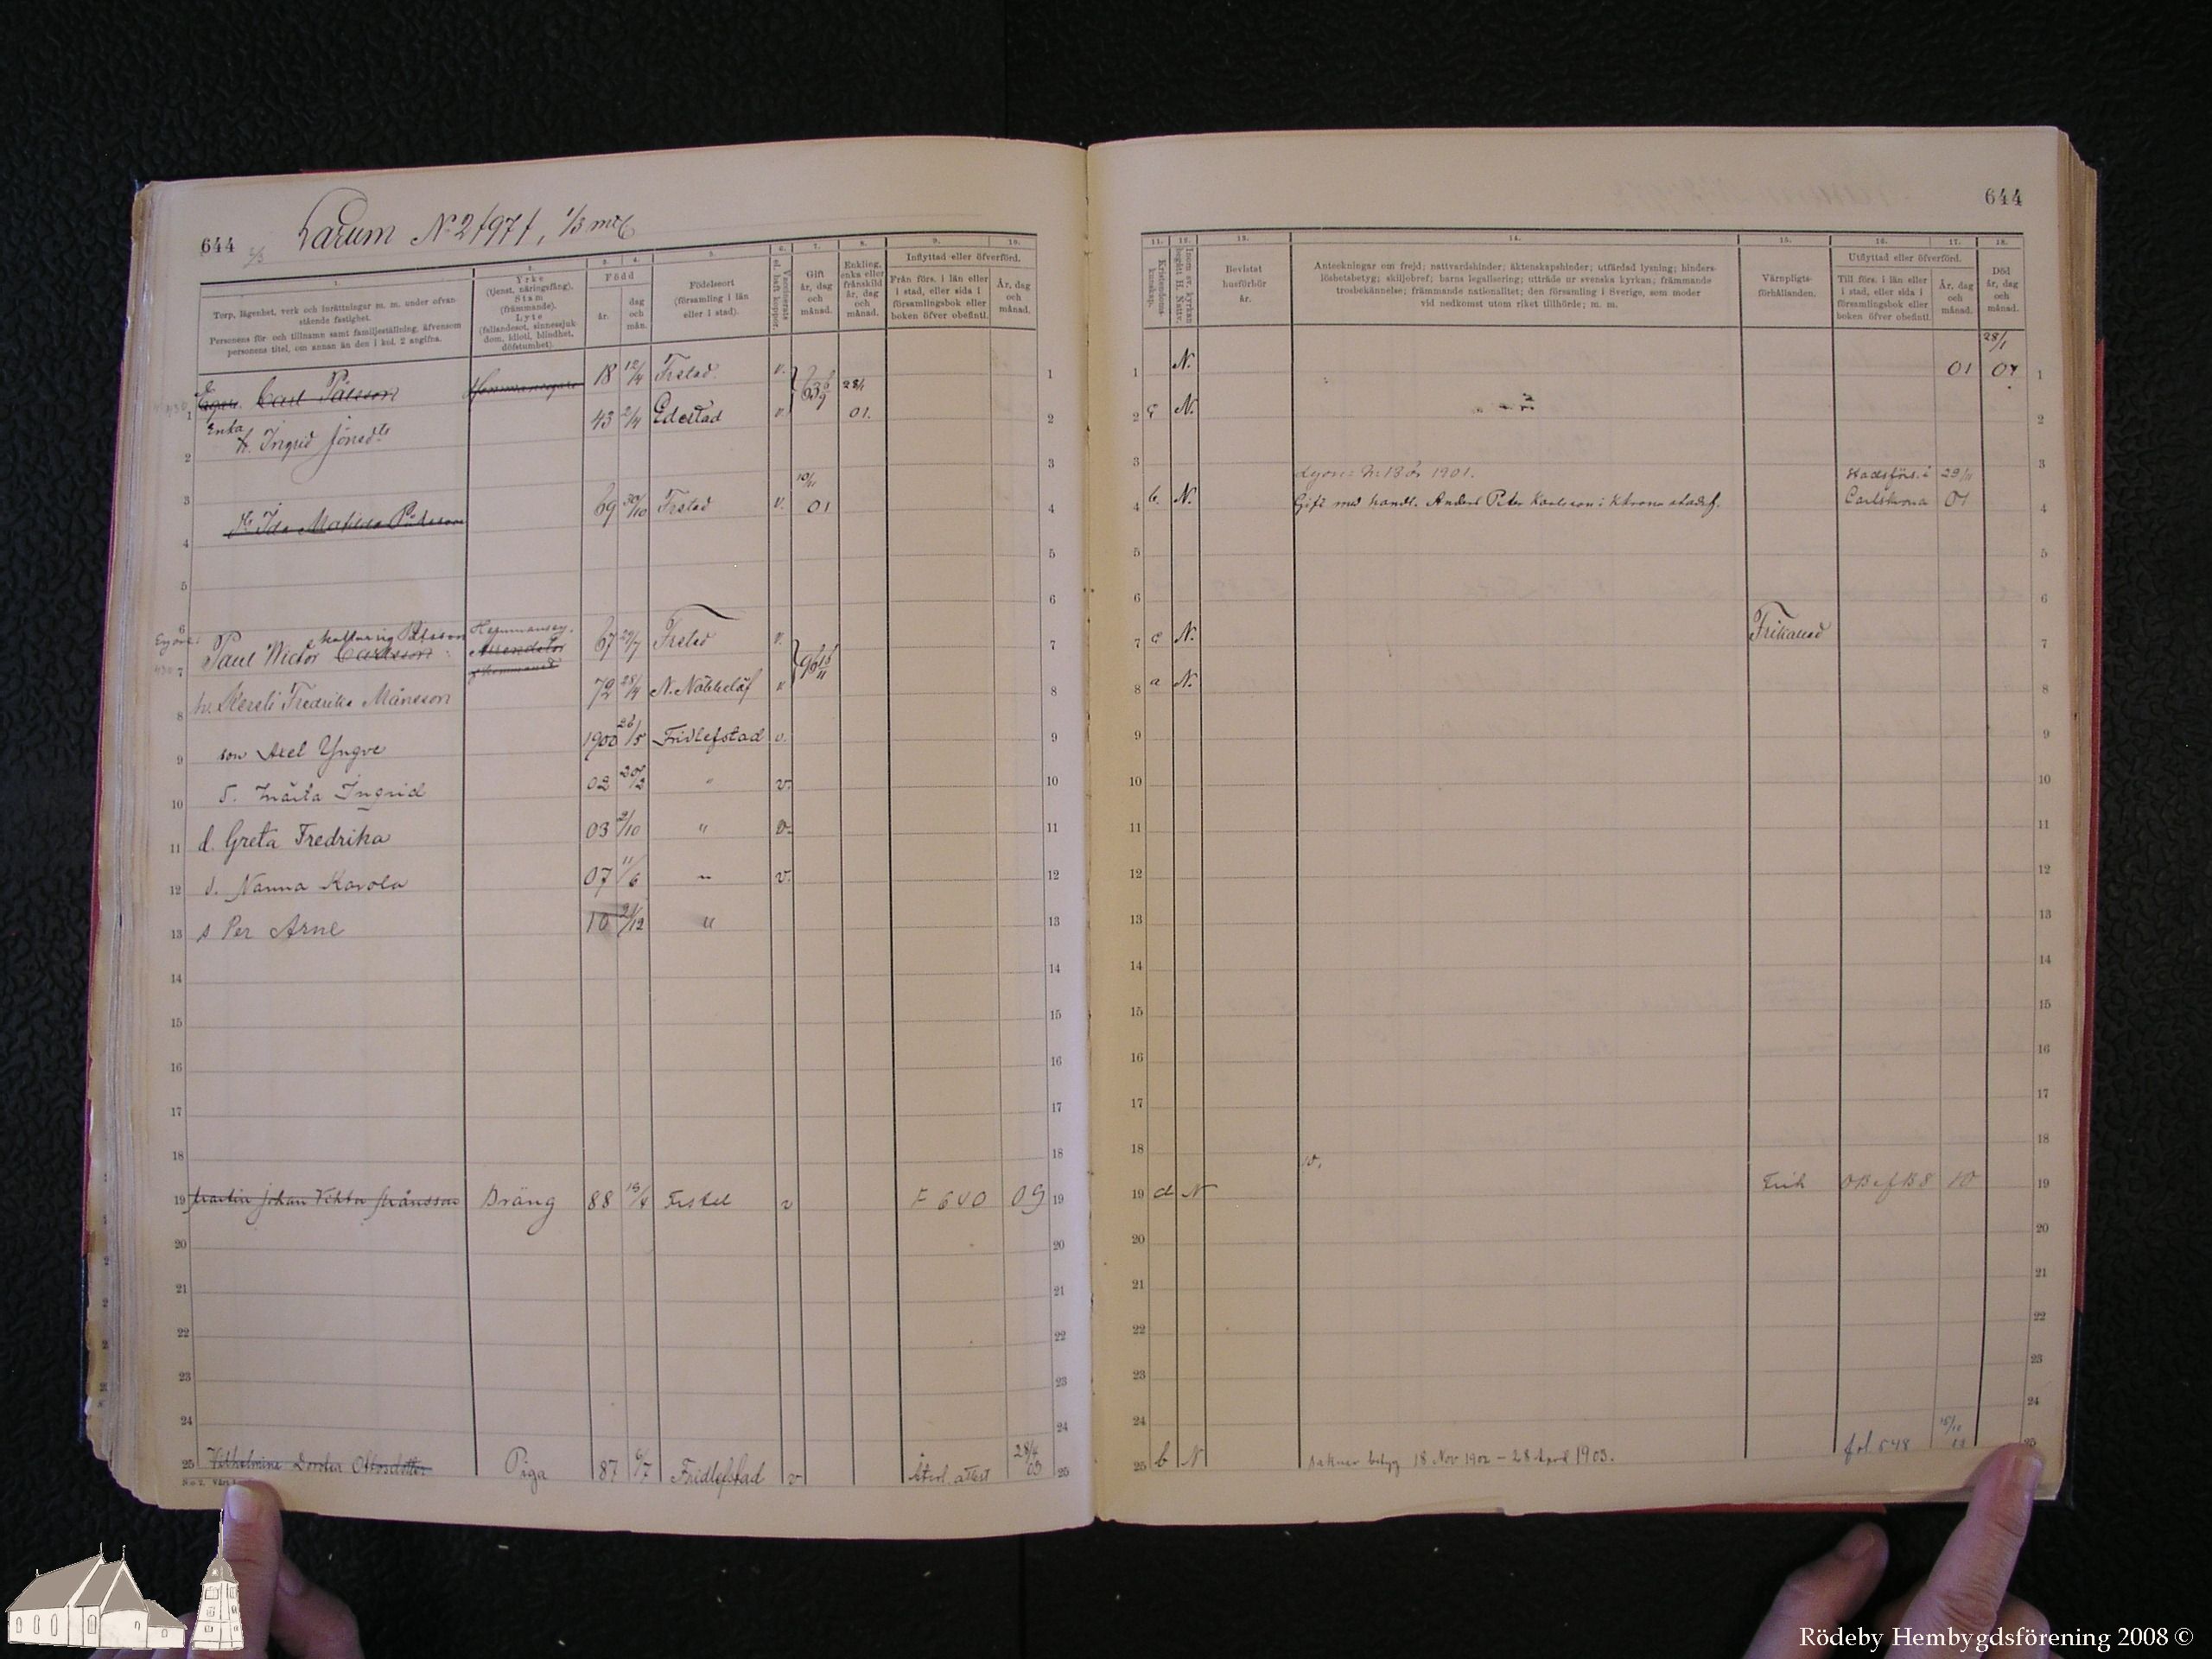 644
Larum N:2 /97/, 1/3 mtl
1.
Torp, lägenhet, verk och inrättningar m. m. under ofvanstående fastighet.
Personens för- och tillnamn samt familjeställning, äfvensom personens titel, om annan än den i kol. 2 angifna.
2.
Yrke
(tjenst, näringsfång).
Stam
(främmande).
Lyte
(fallandesot, sinnessjukdom, idioti, blindhet, döfstumhet).
3. 4.
Född
år.
dag och mån.
5.
Födelseort
(församling i län eller i stad).
6.
Vaccinerats el. haft koppor.
7.
Gift
år, dag och månad.
8.
Enkling, enka eller frånskild
år, dag och månad.
9. 10.
Inflyttad eller öfverförd.
Från förs. i län eller i stad, eller sida i församlingsbok eller boken öfver obefintl.
År, dag och månad.
1 Carl Pålsson 18 12/4 Frstad v. 63
2 Enka h. Ingrid Jönsdtr 43 2/4 Edestad v. 28/1 01.
3
4 Ida Matilda 69 30/10 Frstad v. 10/11 01
5
6
7 Paul Wictor Carlsson Pålsson Arrendator 67 29/7 Frstad v.
8 h. Kersti Fredrika Månsson 72 28/4 N. Nöbbelöf v
9 son Axel Yngve 1900 26/5 Fridlefstad v.
10 d. Märta Ingrid 02 20/2 " v.
11 d. Greta Fredrika 03 2/10 " v.
12 d. Nanna Karola 07 11/6 " v.
13 s Per Arne 10 21/12 "
14
15
16
17
18
19 Martin Johan Viktor Månsson Dräng 88 Frstad v F 640 09
20
21
22
23
24
25 Vilhelmina Dorotea Ottosdotter Piga 87 6/7 Fridlefstad v attest 28/4 03
644
11.
Kristendomskunskap.
12.
Inom sv. kyrkan begått H. Nattv.
13.
Bevistat husförhör år.
14.
Anteckningar om frejd; nattvardshinder; äktenskapshinder; utfärdad lysning; hinderslöshetsbetyg; skiljobref; barns legalisering; utträde ur svenska kyrkan; främmande trosbekännelse; främmande nationalitet; den församling i Sverige, som moder vid nedkomst utom riket tillhörde; m. m.
15.
Värnpligtsförhållanden.
16. 17.
Utflyttad eller öfverförd.
Till förs. i län eller i stad, eller sida i församlingsbok eller boken öfver obefintl.
År, dag och månad.
18.
Död
år, dag och månad.
1 N. 28/1 01
2 c N.
3
4 b. N. Lysn: N:13 år 1901.
Gift med handl. Anders Peter Karlsson i Kkrona stadsf. Stadsförs. i Carlskrona 29/11 01
5
6
7 c N. Frikänd
8 a N.
9
10
11
12
13
14
15
16
17
18
19 d N 10
20
21
22
23
24
25 b N saknar betyg 18 Nov 1902 - 28 April 1903. fol 548
Rödeby Hembygdsförening 2008 ©